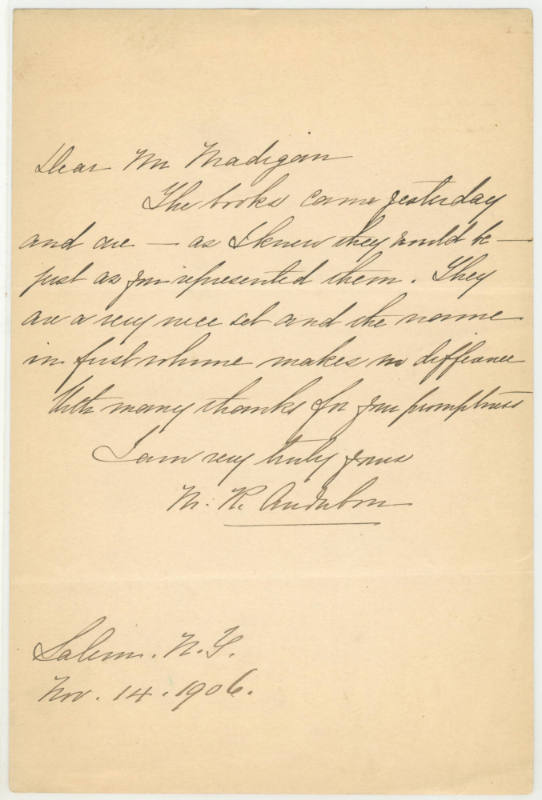 Dear Mr Madigan
The books came yesterday
and are — as I knew they would be —
just as you represented them. They
are a very nice set and the name
in first volume makes no differance
With many thanks for your promptness
I am very truly yours
M. R. Audubon
Salem. N.Y.
Nov. 14. 1906.